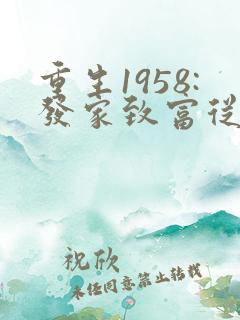 重生1958:
發家致富從
祝欣
未经同意禁止转载